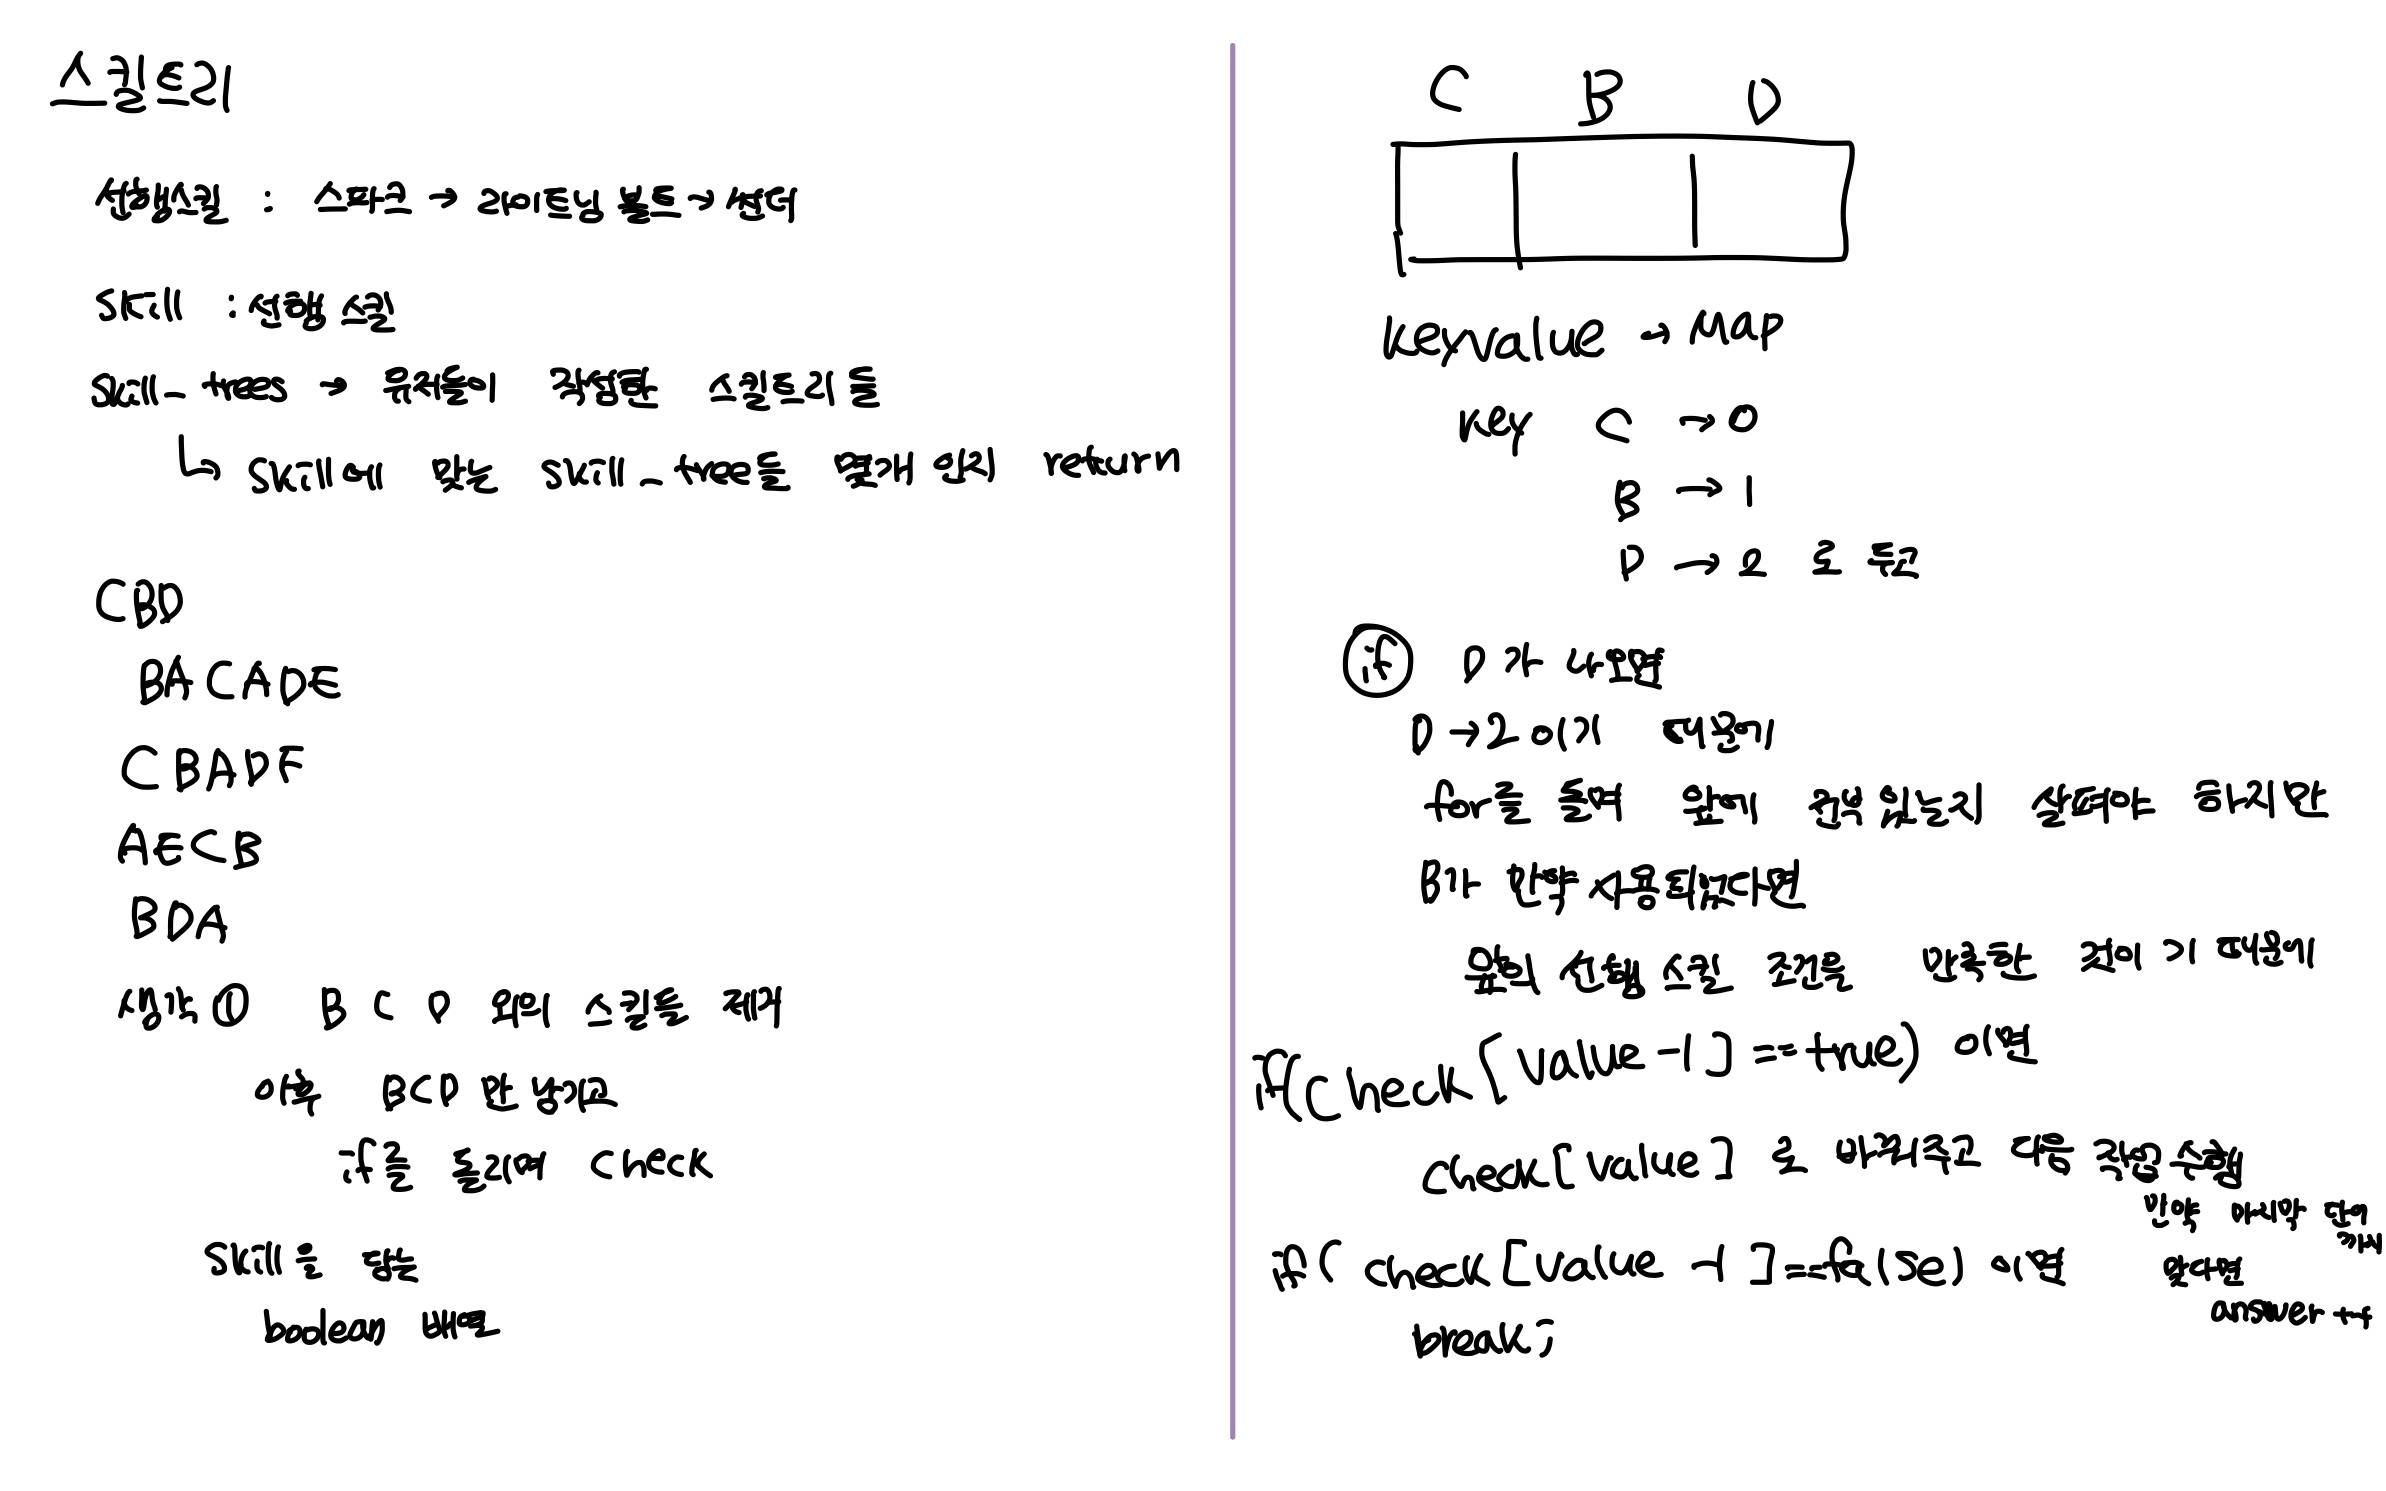 스킬트리
선행스킬 : 스파크 → 라이트닝 볼트 → 썬더
skill : 선행 스킬
skill_trees → 유저들이 작성한 스킬트리들
skill에 맞는 skill_tree들 몇개 인지 return
CBD
BACADE
CBADF
AECB
BDA
생각 ① B C D 외의 스킬들 제거
이후 BCD만 남기고
if를 돌리며 check
skill을 담는
boolean 배열
C B D
keyvalue → Map
key C → 0
B → 1
D → 2 로 두고
if D가 나오면
D → 2 이기 때문에
for를 돌며 앞에 전부 있는지 살펴야 하지만
B가 만약 사용되었다면
앞의 선행 스킬 조건을 만족한 것이기 때문에
if(check[value-1]==true) 이면
check[value] 로 바꿔주고 다음 작업 수행
만약 마지막 단어
까지
if( check[value -1]==false) 이면
맞다면
answer++
break;